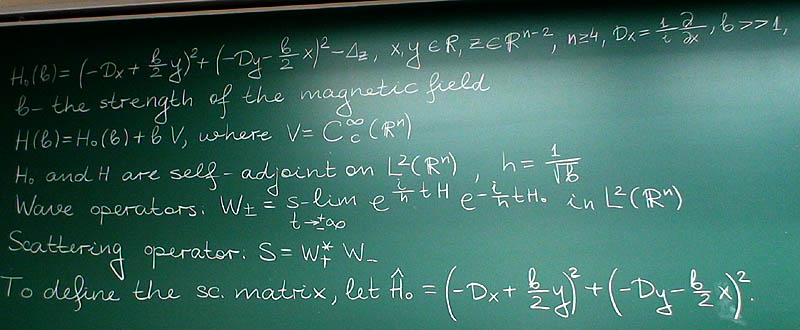 H₀(b) = (-Dx + b/2 y)² + (-Dy - b/2 x)² - Δz, x, y ∈ ℝ, z ∈ ℝⁿ⁻², n≥4, Dx = 1/i ∂/∂x, b >> 1,
b - the strength of the magnetic field
H(b) = H₀(b) + b V, where V = C_c^∞(ℝⁿ)
H₀ and H are self-adjoint on L²(ℝⁿ), h = 1/√b
Wave operators: W± = s-lim_{t→±∞} e^{i/h tH} e^{-i/h tH₀} in L²(ℝⁿ)
Scattering operator: S = W₊* W₋
To define the sc. matrix, let Ĥ₀ = (-Dx + b/2 y)² + (-Dy - b/2 x)².